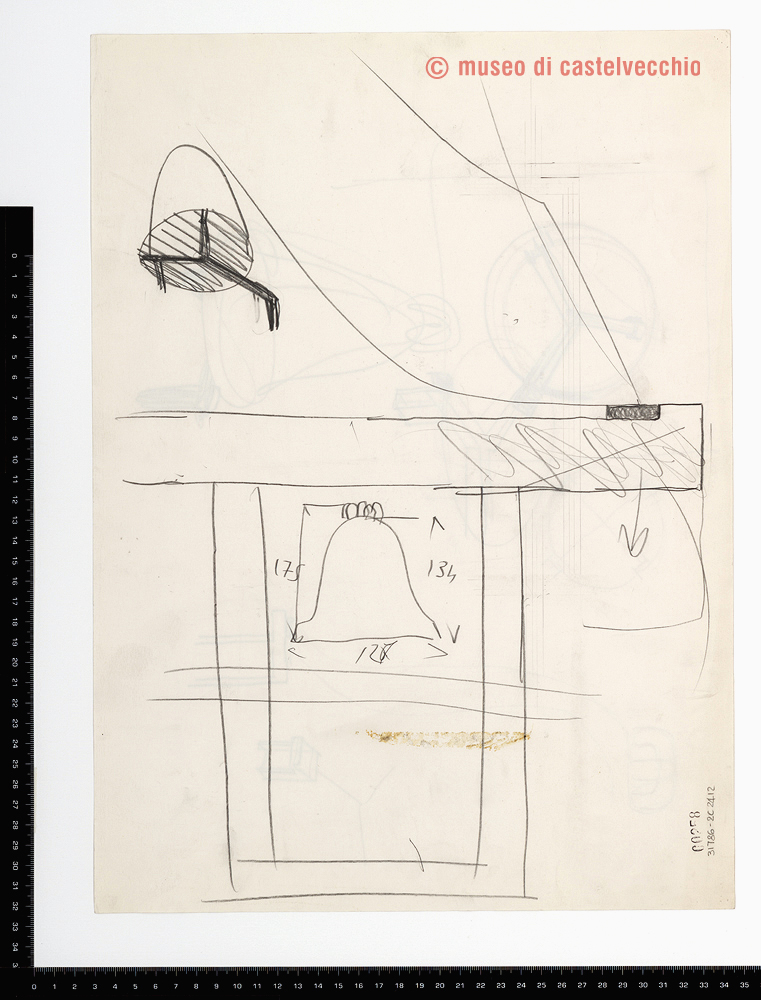 © museo di castelvecchio
175
134
31786-2C 2412
0 1 2 3 4 5 6 7 8 9 10 11 12 13 14 15 16 17 18 19 20 21 22 23 24 25 26 27 28 29 30 31 32 33 3
0 1 2 3 4 5 6 7 8 9 10 11 12 13 14 15 16 17 18 19 20 21 22 23 24 25 26 27 28 29 30 31 32 33 34 35